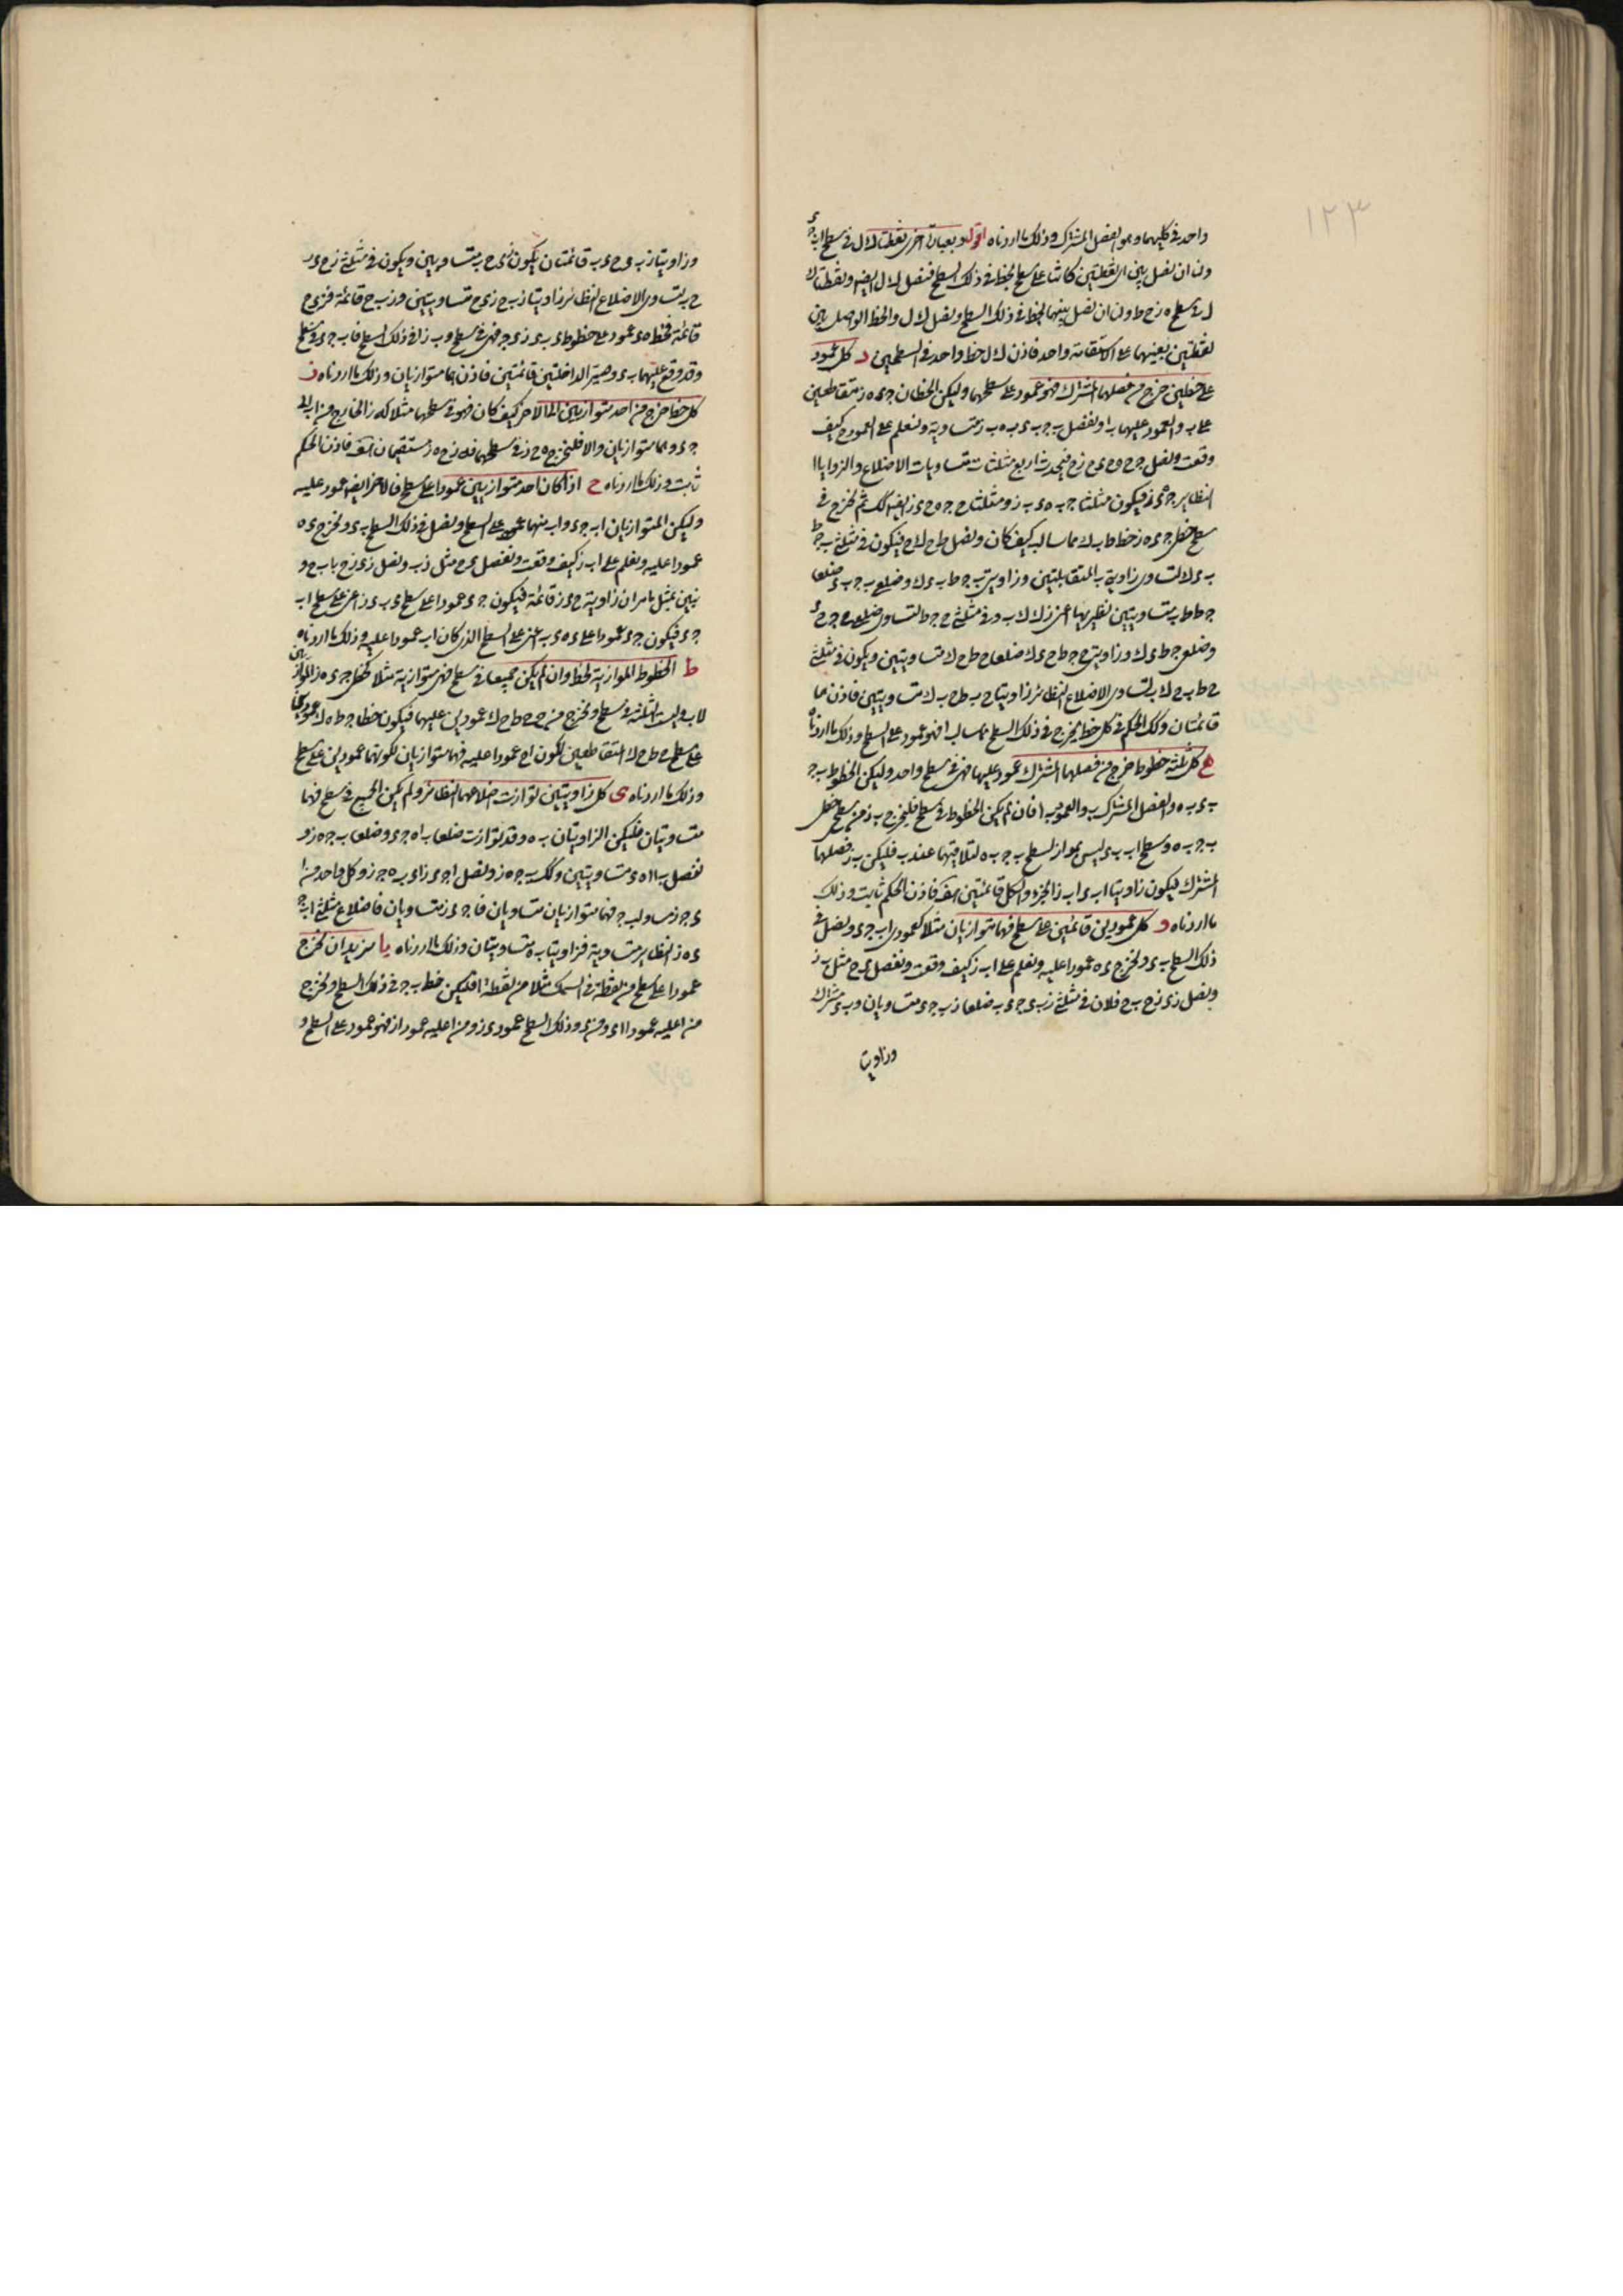 ١٢٣
واحد فى كليهما وهو الفصل المشترك وذلك ما اردناه اقول وبعبارة اخرى نقطتا ك ل فى سطح ا ب ج د
ولنا ان نصل بين اى نقطتين كانتا على سطح بخط فى ذلك السطح فنصل ك ل ايضا ونقطتا ك
ل فى سطح ه ز ح ط ولنا ان نصل بينهما بخط فى ذلك السطح ونصل ك ل والخط الواصل بين
نقطتين بعينهما على الاستقامة واحد فاذن ك ل خط واحد فى السطحين د كل عمود
على خطين خرج من فصلهما المشترك فهو عمود على سطحهما وليكن الخطان ج د ه ز متقاطعين
على ب والعمود عليهما ب ا ونفصل ب ج ب د ب ه ب ز متساوية ونعلم على العمود ح كيف
وقعت ونصل ح ج ح ه ح د ح ز فيحدث اربع مثلثات متساويات الاضلاع والزوايا
النظاير فيكون مثلثا ج ب ه د ب ز ومثلثا ح ج ه ح د ز ايضا كذلك ثم نخرج فى
سطح خطى ج د ه ز خط ط ب ك مماسا لب كيف كان ونصل ط ح ك ح فيكون فى مثلثى ب ج ط
ب د ك لتساوى زاويتى ب المتقابلتين وزاويتى ب ج ط ب د ك وضلعى ب ج ب د ضلعا
ج ط ط ب متساويين لنظيريهما اعنى د ك ك ب وفى مثلثى ح ج ط لتساوى ضلعى ح ج ح د
وضلعى ج ط د ك وزاويتى ح ج ط ح د ك ضلعا ح ط ح ك متساويين ويكون فى مثلثى
ح ط ب ح ك ب لتساوى الاضلاع النظائر زاويتا ح ب ط ح ب ك متساويتين فاذن هما
قائمتان وكذلك الحكم فى كل خط يخرج فى ذلك السطح مماسا لب ا فهو عمود على السطح وذلك ما اردناه
ه كل ثلثة خطوط خرج من فصلها المشترك عمود عليها فهى فى سطح واحد وليكن الخطوط ب ج
ب د ب ه والفصل المشترك ب والعمود ب ا فان لم يكن الخطوط فى سطح فليخرج ب ز من سطح خطى
ب ج ب ه وسطح ا ب ب د ليس بمواز لسطح ب ج ب ه لتلاقيهما عند ب فليكن ب ز فصلهما
المشترك ليكون زاويتا ا ب د ا ب ز الجزء والكل قائمتين هف فاذن الحكم ثابت وذلك
ما اردناه و كل عمودين قائمين على سطح فهما متوازيان مثلا كعمودى ا ب ج د ونصل فى
ذلك السطح ب د ونخرج د ه عمودا عليه ونعلم على ا ب ز كيف وقعت ونفصل د ح مثل ب ز
ونصل ز د ز ح ب ح فلان فى مثلثى ز ب د ح د ب ضلعا ز ب ح د متساويان و ب د مشترك
وزاويتا
وزاويتا ز ب د ح د ب قائمتان يكون ز د ح ب متساويين ويكون فى مثلثى ز ح د ز
ح ب لتساوى الاضلاع النظائر زاويتا ز ب ح ز د ح متساويتين و ز ب ح قائمة فز د ح
قائمة فخط ه د عمود على خطوط د ب د ز د ج فهى فى سطح و ب ز فى ذلك السطح فا ب ج د فى سطح
وقد وقع عليهما ب د وصير الداخلتين قائمتين فاذن هما متوازيان وذلك ما اردناه ز
كل خط خرج من احد متوازيين الى الاخر كيف كان فهو فى سطحهما مثلا كه ز الخارج من ا ب الى
ج د وهما متوازيان والا فليخرج ه ح ز فى سطحهما فه ز ح ه ز مستقيمان هف فاذن الحكم
ثابت وذلك ما اردناه ح اذا كان احد متوازيين عمودا على سطح فالاخر ايضا عمود عليه
وليكن المتوازيان ا ب ج د و ا ب منهما عمود على السطح ونصل فى ذلك السطح ب د ونخرج د ه
عمودا عليه ونعلم على ا ب ز كيف وقعت ونفصل د ح مثل ز ب ونصل ز د ز ح ب ح و
نبين بمثل ما مر ان زاوية ح د ز قائمة فيكون ه د عمودا على سطح د ب د ز اعنى على سطح ا ب
ج د فيكون ج د عمودا على د ه د ب اعنى على السطح الذى كان ا ب عمودا عليه وذلك ما اردناه
ط الخطوط الموازية لخط وان لم يكن جميعا فى سطح فهى متوازية مثلا كخطى ج د ه ز الموازيين
لا ب وليست الثلثة فى سطح ونخرج من ح ح ط ح ك عمودين عليهما فيكون خطا ج ط ه ك عمودين
على سطح ح ط ح ك المتقاطعين لكون ا ح عمودا عليه فهما متوازيان لكونهما عمودين على سطح
وذلك ما اردناه ى كل زاويتين توازت اضلاعهما النظائر ولم يكن الجميع فى سطح فهما
متساويتان فليكن الزاويتان ب ه وقد توازت ضلعا ب ا ه د وضلعا ب ج ه ز و
نفصل ب ا ه د متساويين وكذلك ب ج ه ز ونصل ا د ج ز ا ج د ز ب ه وكل واحد من ا
د ج ز مساو لب ه فهما متوازيان متساويان فا ج د ز متساويان فاضلاع مثلثى ا ب ج
د ه ز النظاير متساوية فزاويتا ب ه متساويتان وذلك ما اردناه يا نريد ان نخرج
عمودا على سطح من نقطة فى السمك مثلا من نقطة ا فليكن خط ب ج فى ذلك السطح ونخرج
من ا عليه عمود ا د ومن د فى ذلك السطح عمود د ز ومن ا عليه عمود ا ز فهو عمود على السطح و